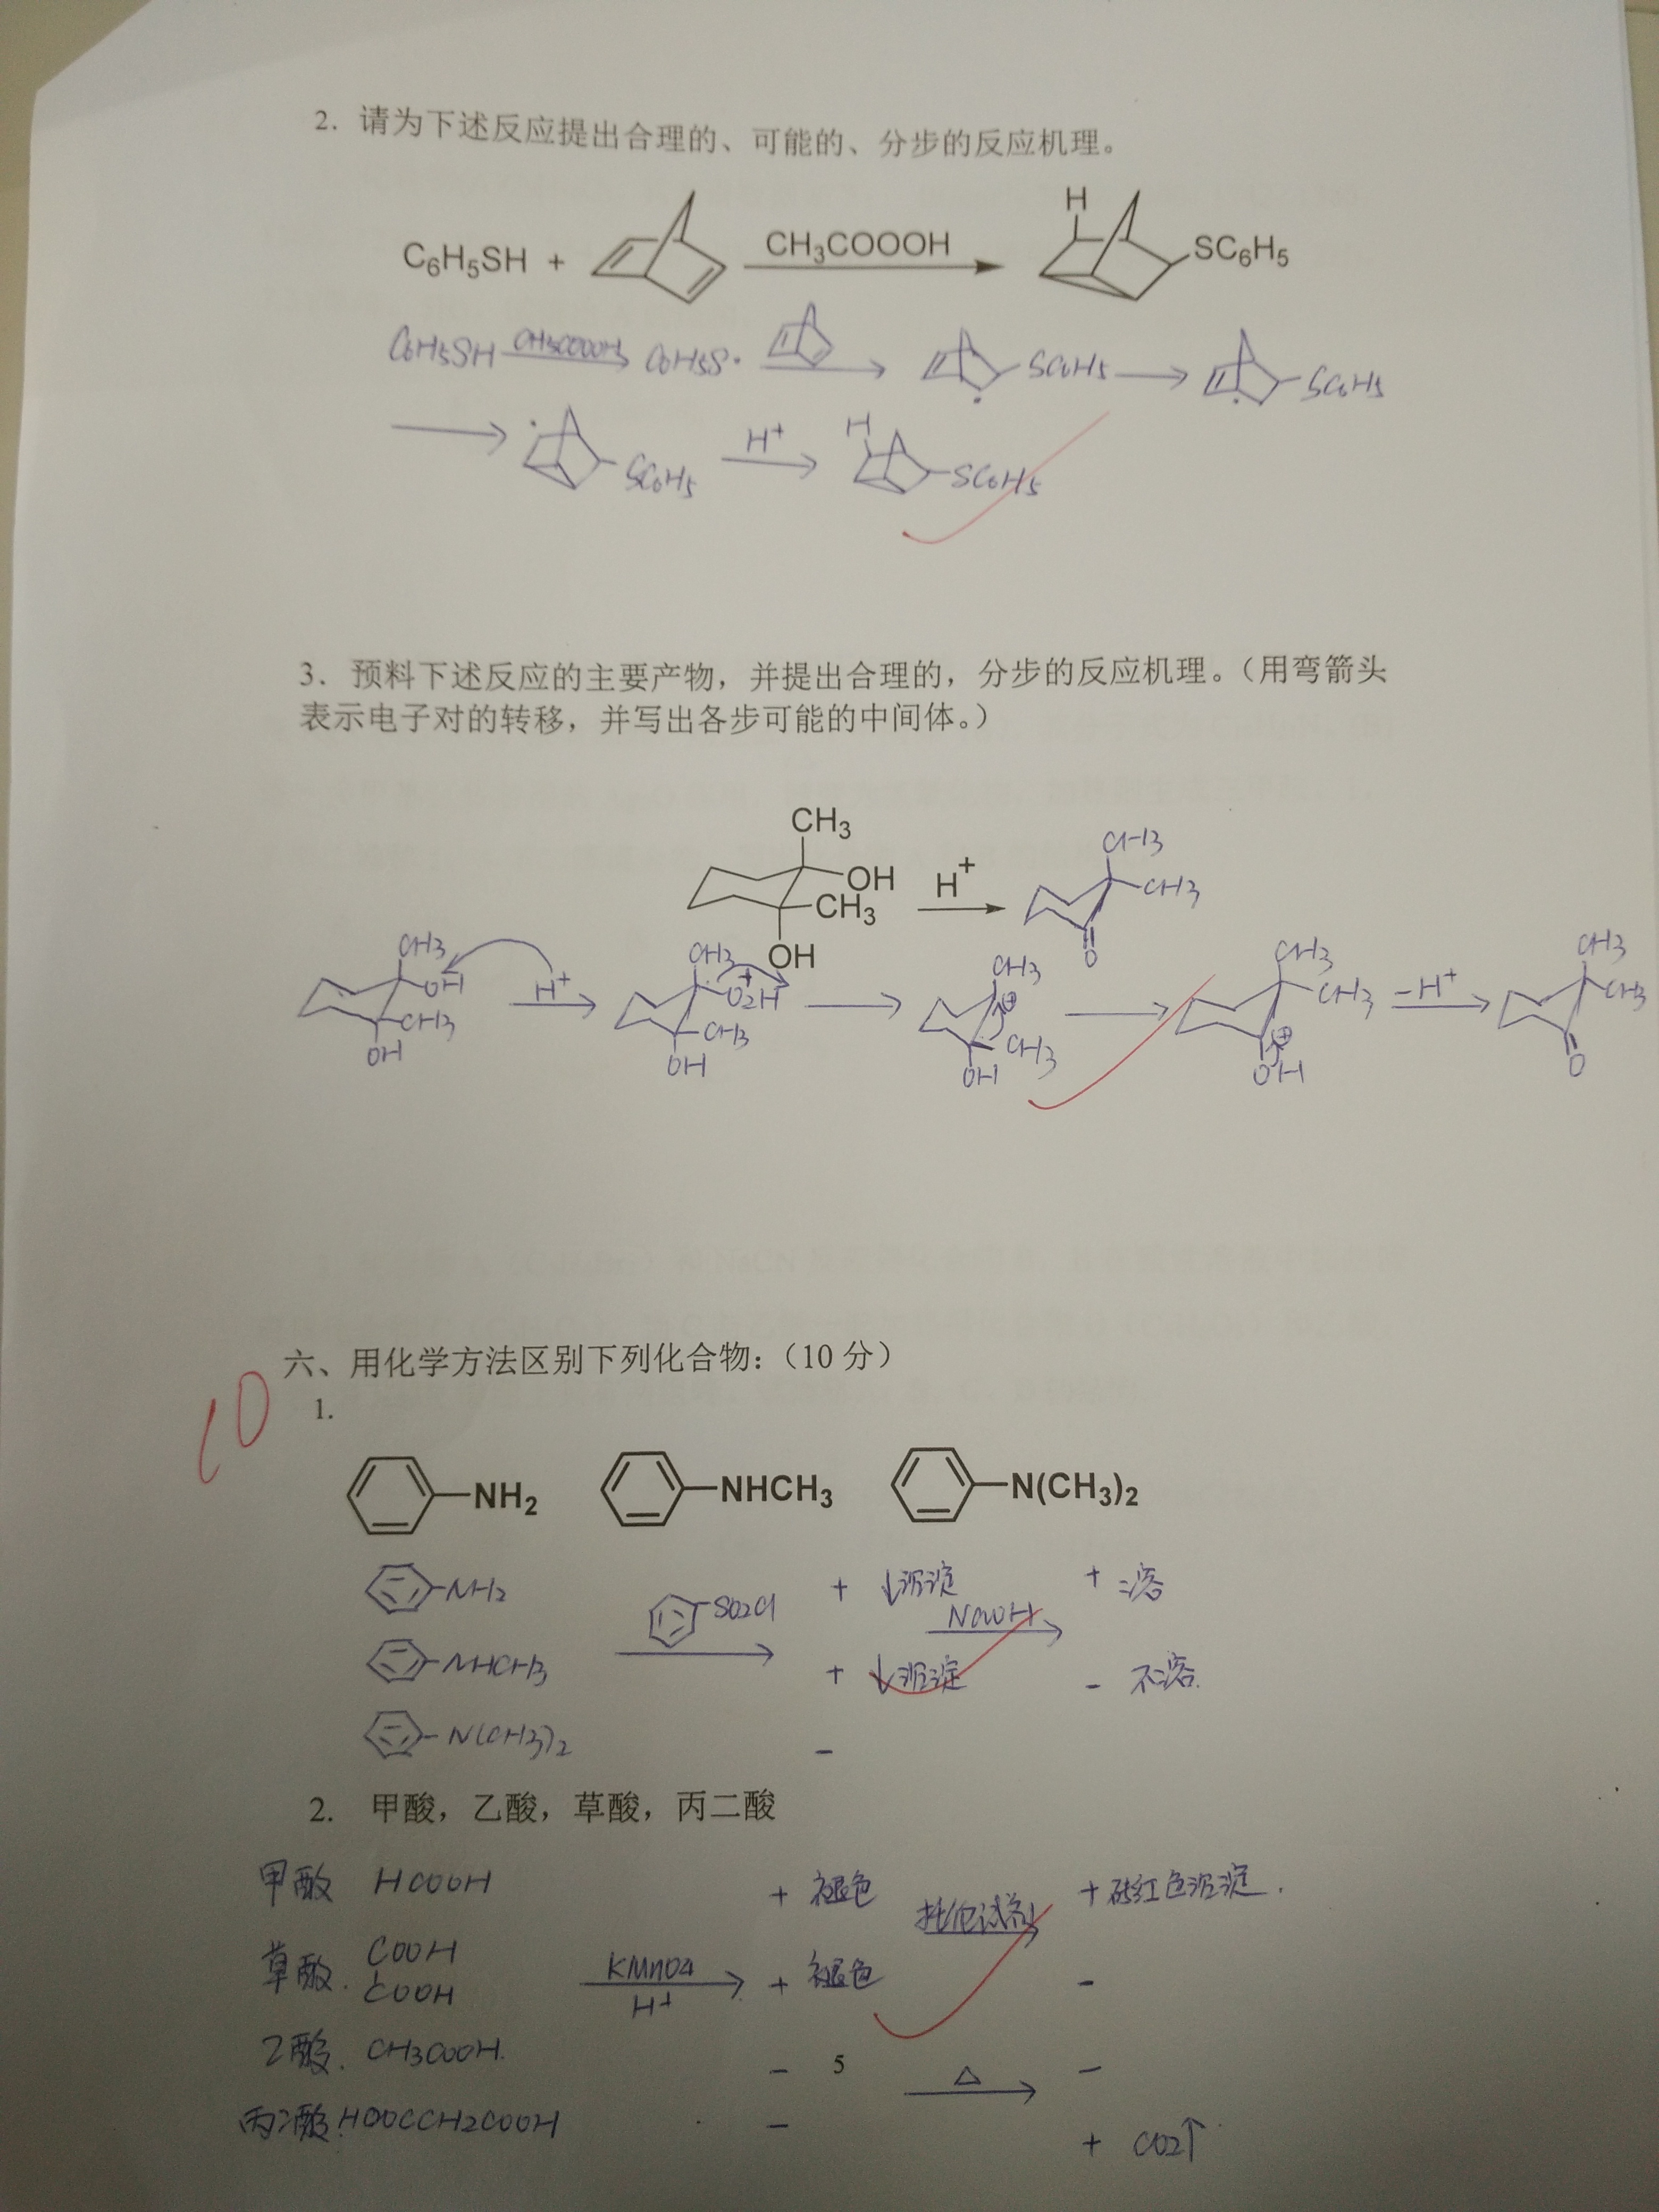 2. 请为下述反应提出合理的、可能的、分步的反应机理。
C6H5SH + CH3COOOH H SC6H5
C6H5SH CH3COOOH C6H5S· SC6H5 SC6H5
SC6H5 H+ H SC6H5
3. 预料下述反应的主要产物，并提出合理的，分步的反应机理。（用弯箭头
表示电子对的转移，并写出各步可能的中间体。）
CH3 OH CH3 OH H+ CH3 CH3 O
CH3 OH CH3 OH H+ CH3 +O2H CH3 OH CH3 ⊕ CH3 OH CH3 CH3 ⊕ OH -H+ CH3 CH3 O
10
六、用化学方法区别下列化合物：（10 分）
1.
NH2 NHCH3 N(CH3)2
NH2 SO2Cl + ↓沉淀 NaOH + 溶
NHCH3 + ↓沉淀 - 不溶.
N(CH3)2 -
2. 甲酸，乙酸，草酸，丙二酸
甲酸 HCOOH + 褪色 托伦试剂 + 砖红色沉淀.
草酸. COOH COOH KMnO4 H+ + 褪色 -
乙酸. CH3COOH. - △ -
5
丙二酸. HOOCCH2COOH - + CO2↑